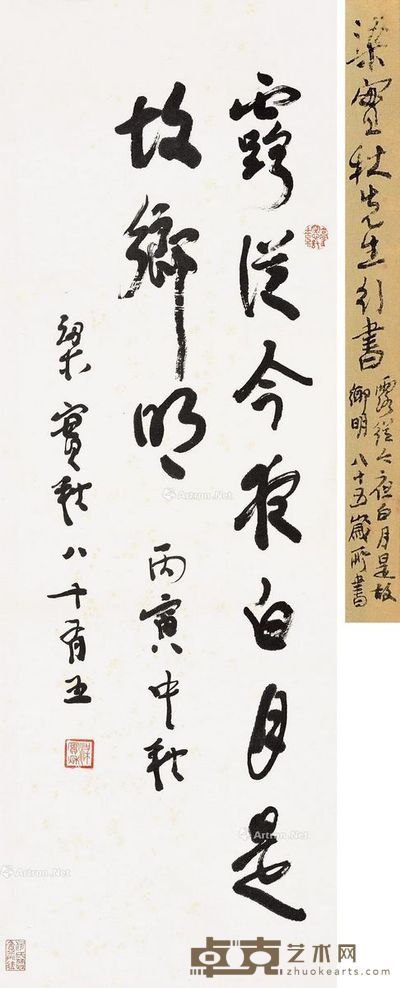 梁實秋先生行書
露從今夜白月是故
鄉明 八十五歲所書
露從今夜白月是
故鄉明
丙寅中秋
梁實秋八十有五
Artron.Net
Artron.Net
Artron.Net
卓克艺术网
zhuokearts.com